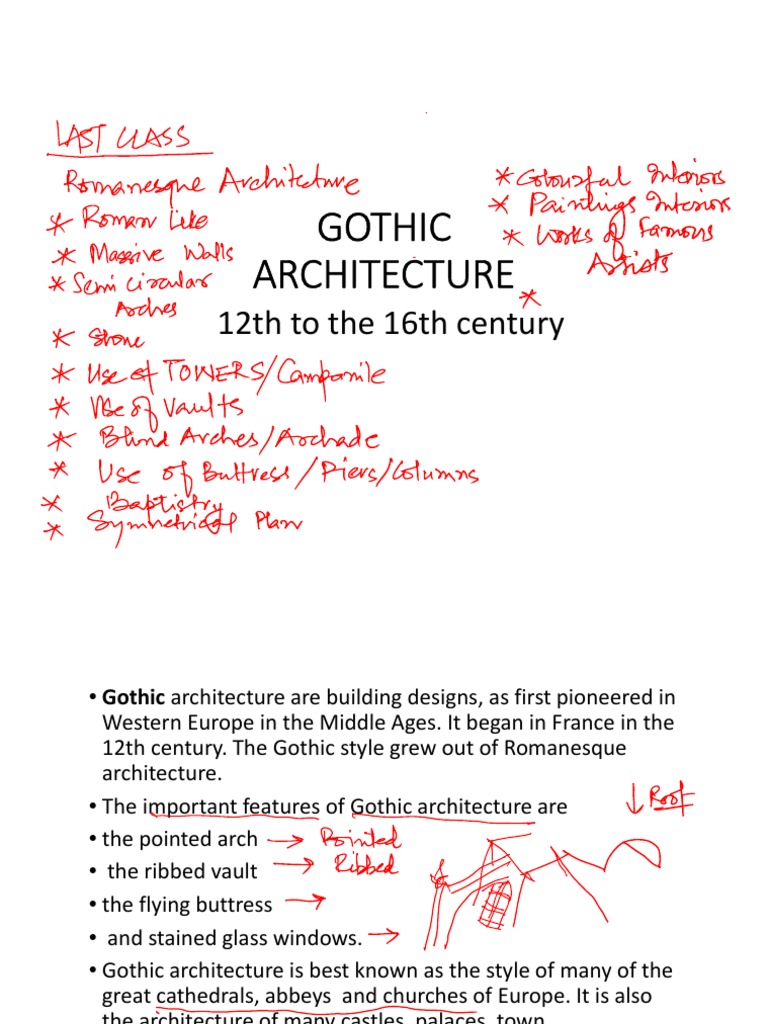 LAST CLASS
Romanesque Architecture
* Roman Like
* Massive Walls
* Semi Circular
Arches
* Stone
* Use of TOWERS/Campanile
* Use of Vaults
* Blind Arches/Archade
* Use of Buttress/Piers/Columns
* Baptistry
* Symmetrical Plan
* Colourful Interiors
* Paintings Interiors
* Works of Famous
Artists
*
GOTHIC
ARCHITECTURE
12th to the 16th century
• Gothic architecture are building designs, as first pioneered in
Western Europe in the Middle Ages. It began in France in the
12th century. The Gothic style grew out of Romanesque
architecture.
• The important features of Gothic architecture are
↓ Roof
• the pointed arch → Pointed
• the ribbed vault → Ribbed
• the flying buttress →
• and stained glass windows. →
• Gothic architecture is best known as the style of many of the
great cathedrals, abbeys and churches of Europe. It is also
the architecture of many castles, palaces, town